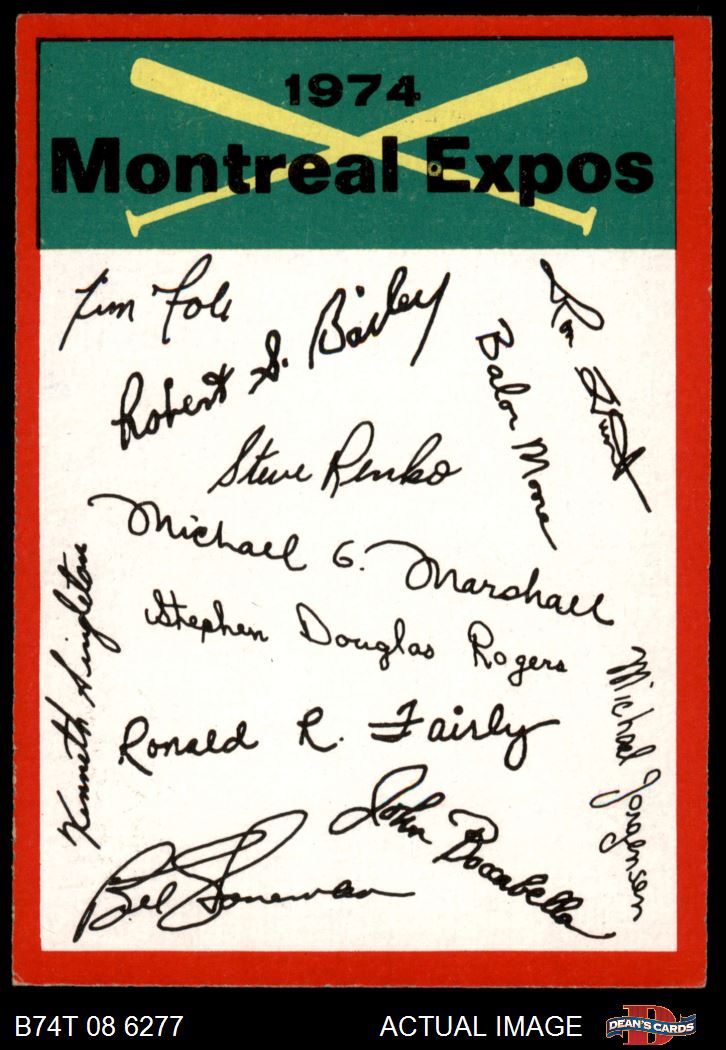 1974
Montreal Expos
Tim Foli
Robert S. Bailey
Ron Hunt
Balor Moore
Steve Renko
Michael G. Marshall
Stephen Douglas Rogers
Kenneth Singleton
Ronald R. Fairly
Michael Jorgensen
John Boccabella
Bill Stoneman
B74T 08 6277
ACTUAL IMAGE
DEAN'S CARDS